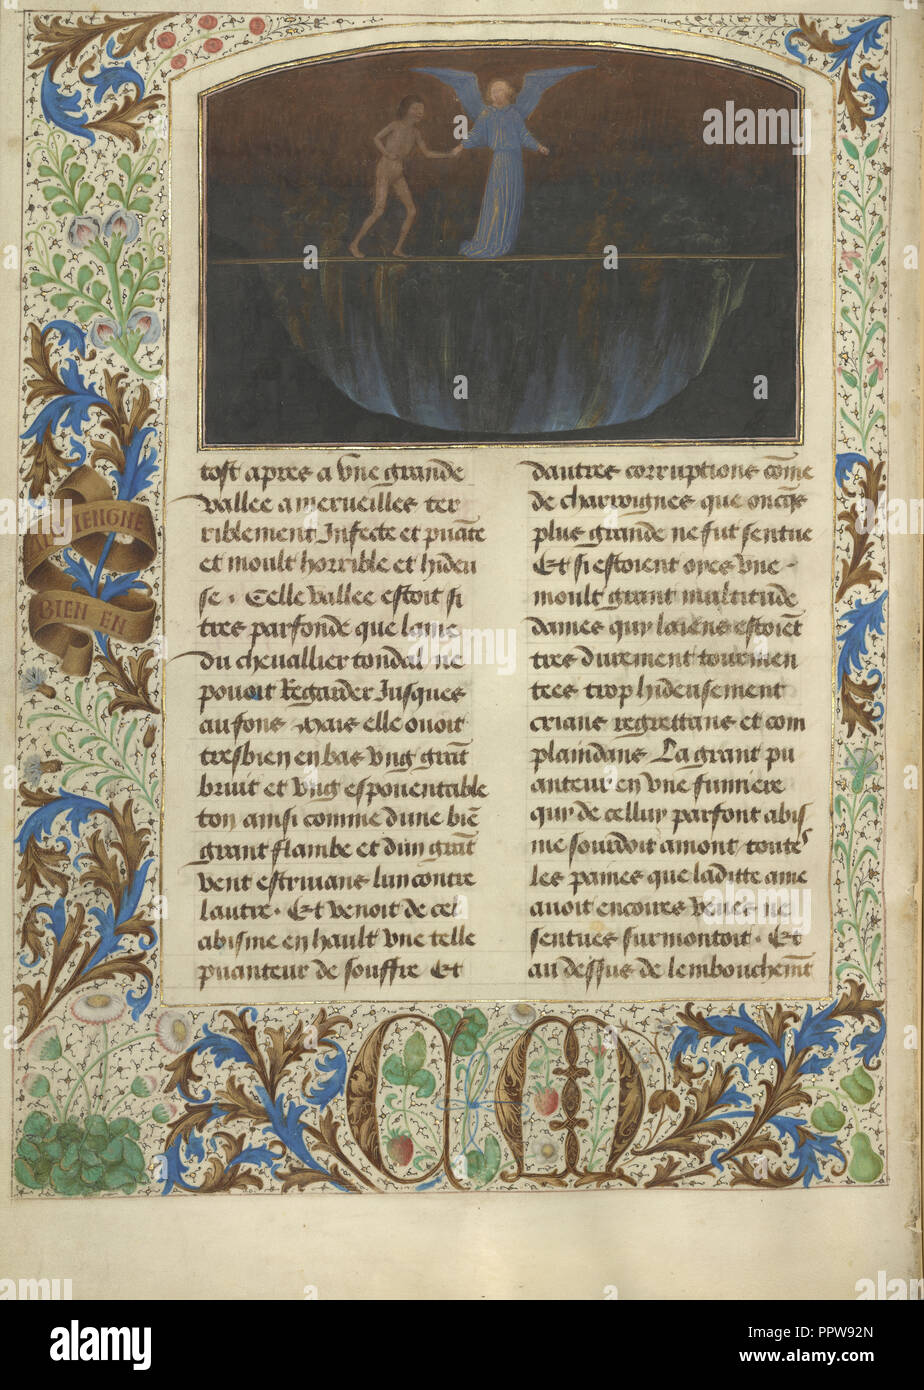 AVIENGNE
BIEN EN
tost apres a vne grande
vallee a merueilles ter
riblement Infecte et puāte
et moult horrible et hideu
se. Celle vallee estoit si
tres parfonde que lame
du cheuallier tondal ne
pouoit Regarder Jusques
au fons Mais elle ouoit
tresbien en bas vng grāt
bruit et vng espouentable
ton ainsi comme dune biē
grant flambe et dun grāt
vent estriuans lun contre
lautre. Et venoit de cel
abisme en hault vne telle
puanteur de souffre Et
dautres corruptions cōme
de charoignes que oncq̄s
plus grande ne fut sentue
Et si estoient ores vne
moult grant multitude
dames quy laiens estoiēt
tres durement tourmen
tees trop hideusement
crians regrettans et com
plaindans La grant pu
anteur en vne fumiere
quy de celluy parfont abis
me sourdoit amont toutes
les paines que laditte ame
auoit encoures veues ne
sentues surmontoit. Et
au dessus de lembouchemēt
C M
a alamy stock photo
alamy
Image ID: PPW92N
www.alamy.com